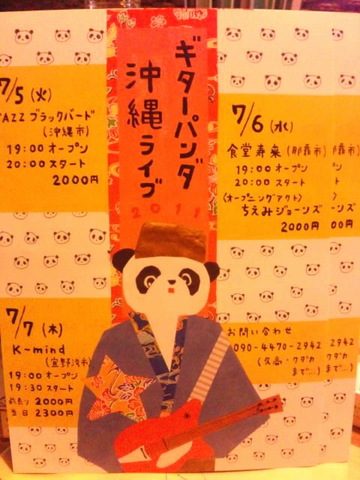 ギターパンダ
沖縄ライブ
2011
7/5 (火)
JAZZ ブラックバード
(沖縄市)
19:00 オープン
20:00 スタート
2000円
7/6 (水)
食堂寿楽 (那覇市)
19:00 オープン
20:00 スタート
(オープニングアクト)
ちえみジョーンズ
2000円
7/7 (木)
K-mind
(宜野湾市)
19:00 オープン
19:30 スタート
前売り 2000円
当日 2300円
お問い合わせ
090-4470-2942
(久高・クダカ
まで...)